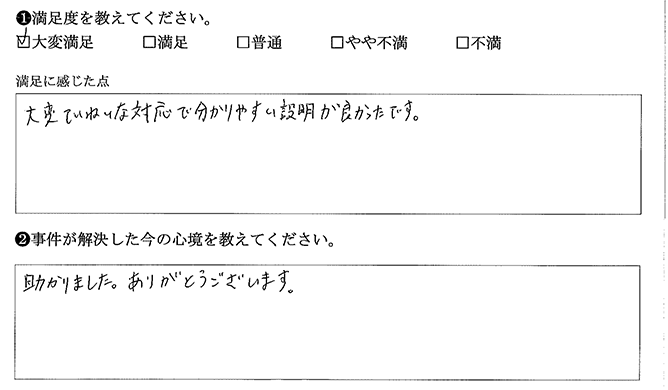 ❶満足度を教えてください。
☑大変満足 □満足 □普通 □やや不満 □不満
満足に感じた点
大変ていねいな対応で分かりやすい説明が良かったです。
❷事件が解決した今の心境を教えてください。
助かりました。ありがとうございます。